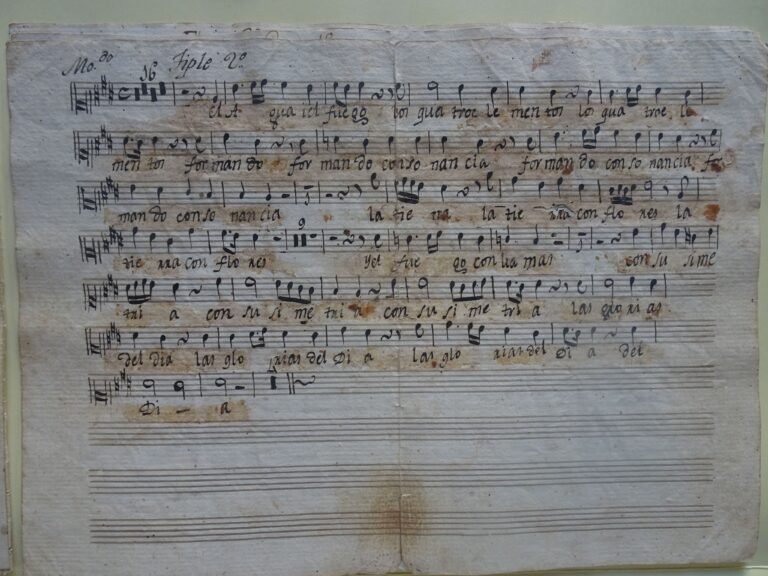 Mo.do 16 Tiple 2o
el A gua i el fue go los qua tro e le men tos los qua tro e le
men tos for man do for man do con so nan cia for man do con so nan cia for
man do con so nan cia la tie rra la tie rra con flo res la
9
tie rra con flo res y el fue go con lla mas con su si me
tri a con su si me tri a con su si me tri a las glo rias
del dia las glo rias del Di a las glo rias del Di a del
Di - a